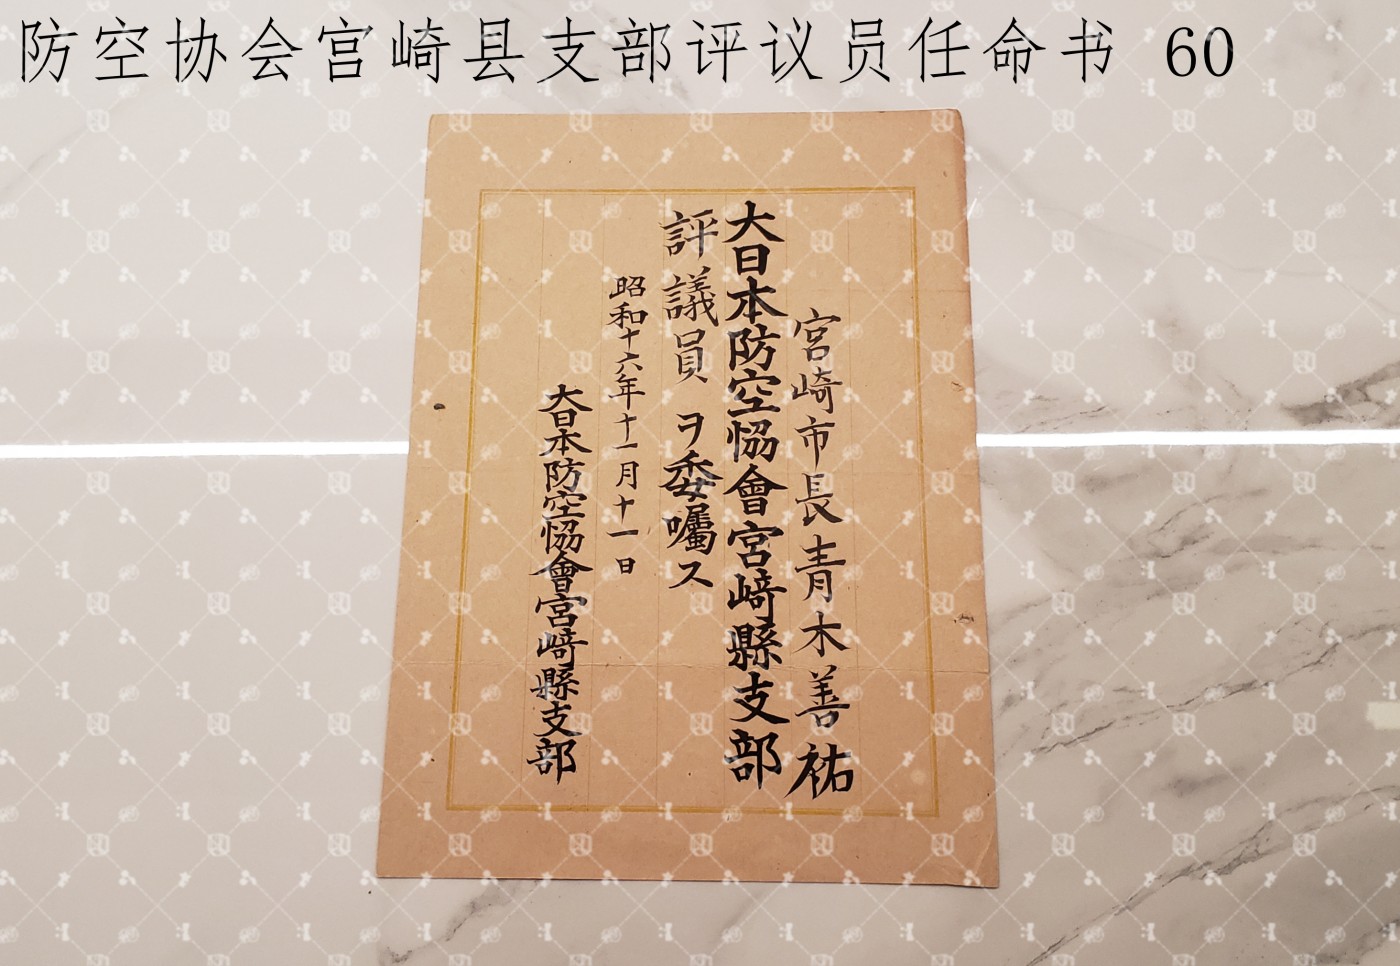 防空协会宫崎县支部评议员任命书 60
宮崎市長青木善祐
大日本防空協會宮崎縣支部
評議員ヲ委囑ス
昭和十六年十一月十一日
大日本防空協會宮崎縣支部